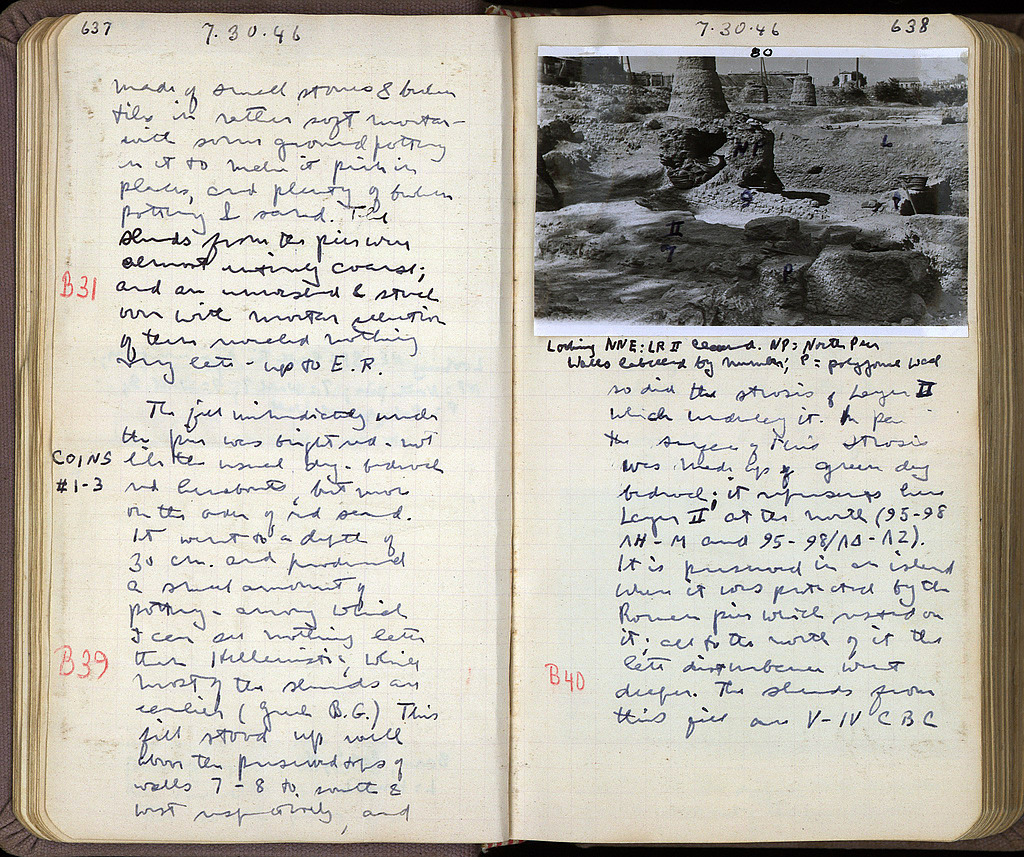 637
7.30.46
made of small stones & broken
tiles in rather soft mortar –
with some ground pottery
in it to make it pink in
places, and plenty of broken
pottery & sand. The
sherds from the pier were
almost entirely coarse;
B31
and an unwashed & stuck
over with mortar selection
of them revealed nothing
very late – up to E.R.
The fill immediately under
the pier was bright red – not
COINS
#1-3
like the usual dry – bedrock
red hereabouts, but more
on the order of red sand.
It went to a depth of
30 cm. and produced
a small amount of
pottery – among which
I can see nothing later
B39
than Hellenistic, while
most of the sherds are
earlier (Greek B.G.) This
fill stood up well
above the preserved tops of
walls 7 – 8 to south &
west respectively, and
7.30.46
638
80
NP
L
8
II
7
P
Looking NNE: LR II cleared. NP = North Pier
Walls labelled by number; P = polygonal wall
so did the strosis of Layer II
which underlay it. In part
the surface of this strosis
was made up of green dry
bedrock; it represents here
Layer II at the north (95-98
ΛH-M and 95-98/ΛΔ-ΛΖ).
It is preserved in an island
where it was protected by the
Roman pier which rested on
it; all to the north of it the
late disturbance went
B40
deeper. The sherds from
this fill are V-IV C BC